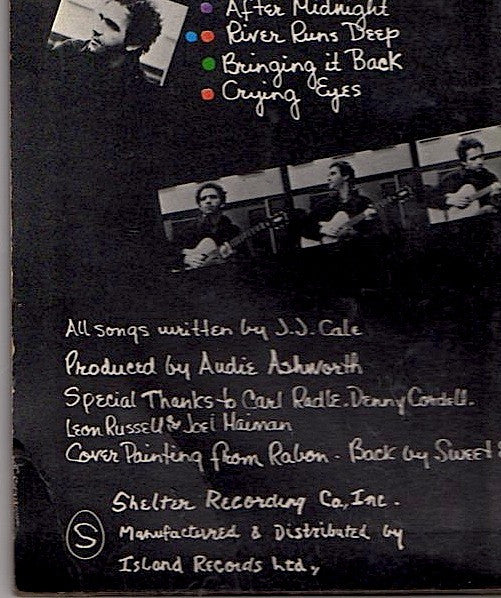 After Midnight
River Runs Deep
Bringing it Back
Crying Eyes
All songs written by J.J. Cale
Produced by Audie Ashworth
Special Thanks to Carl Radle. Denny Cordell.
Leon Russell & Joel Haiman
Cover Painting from Rabon - Back by Sweet
Shelter Recording Co, Inc.
S
Manufactured & Distributed by
Island Records Ltd,